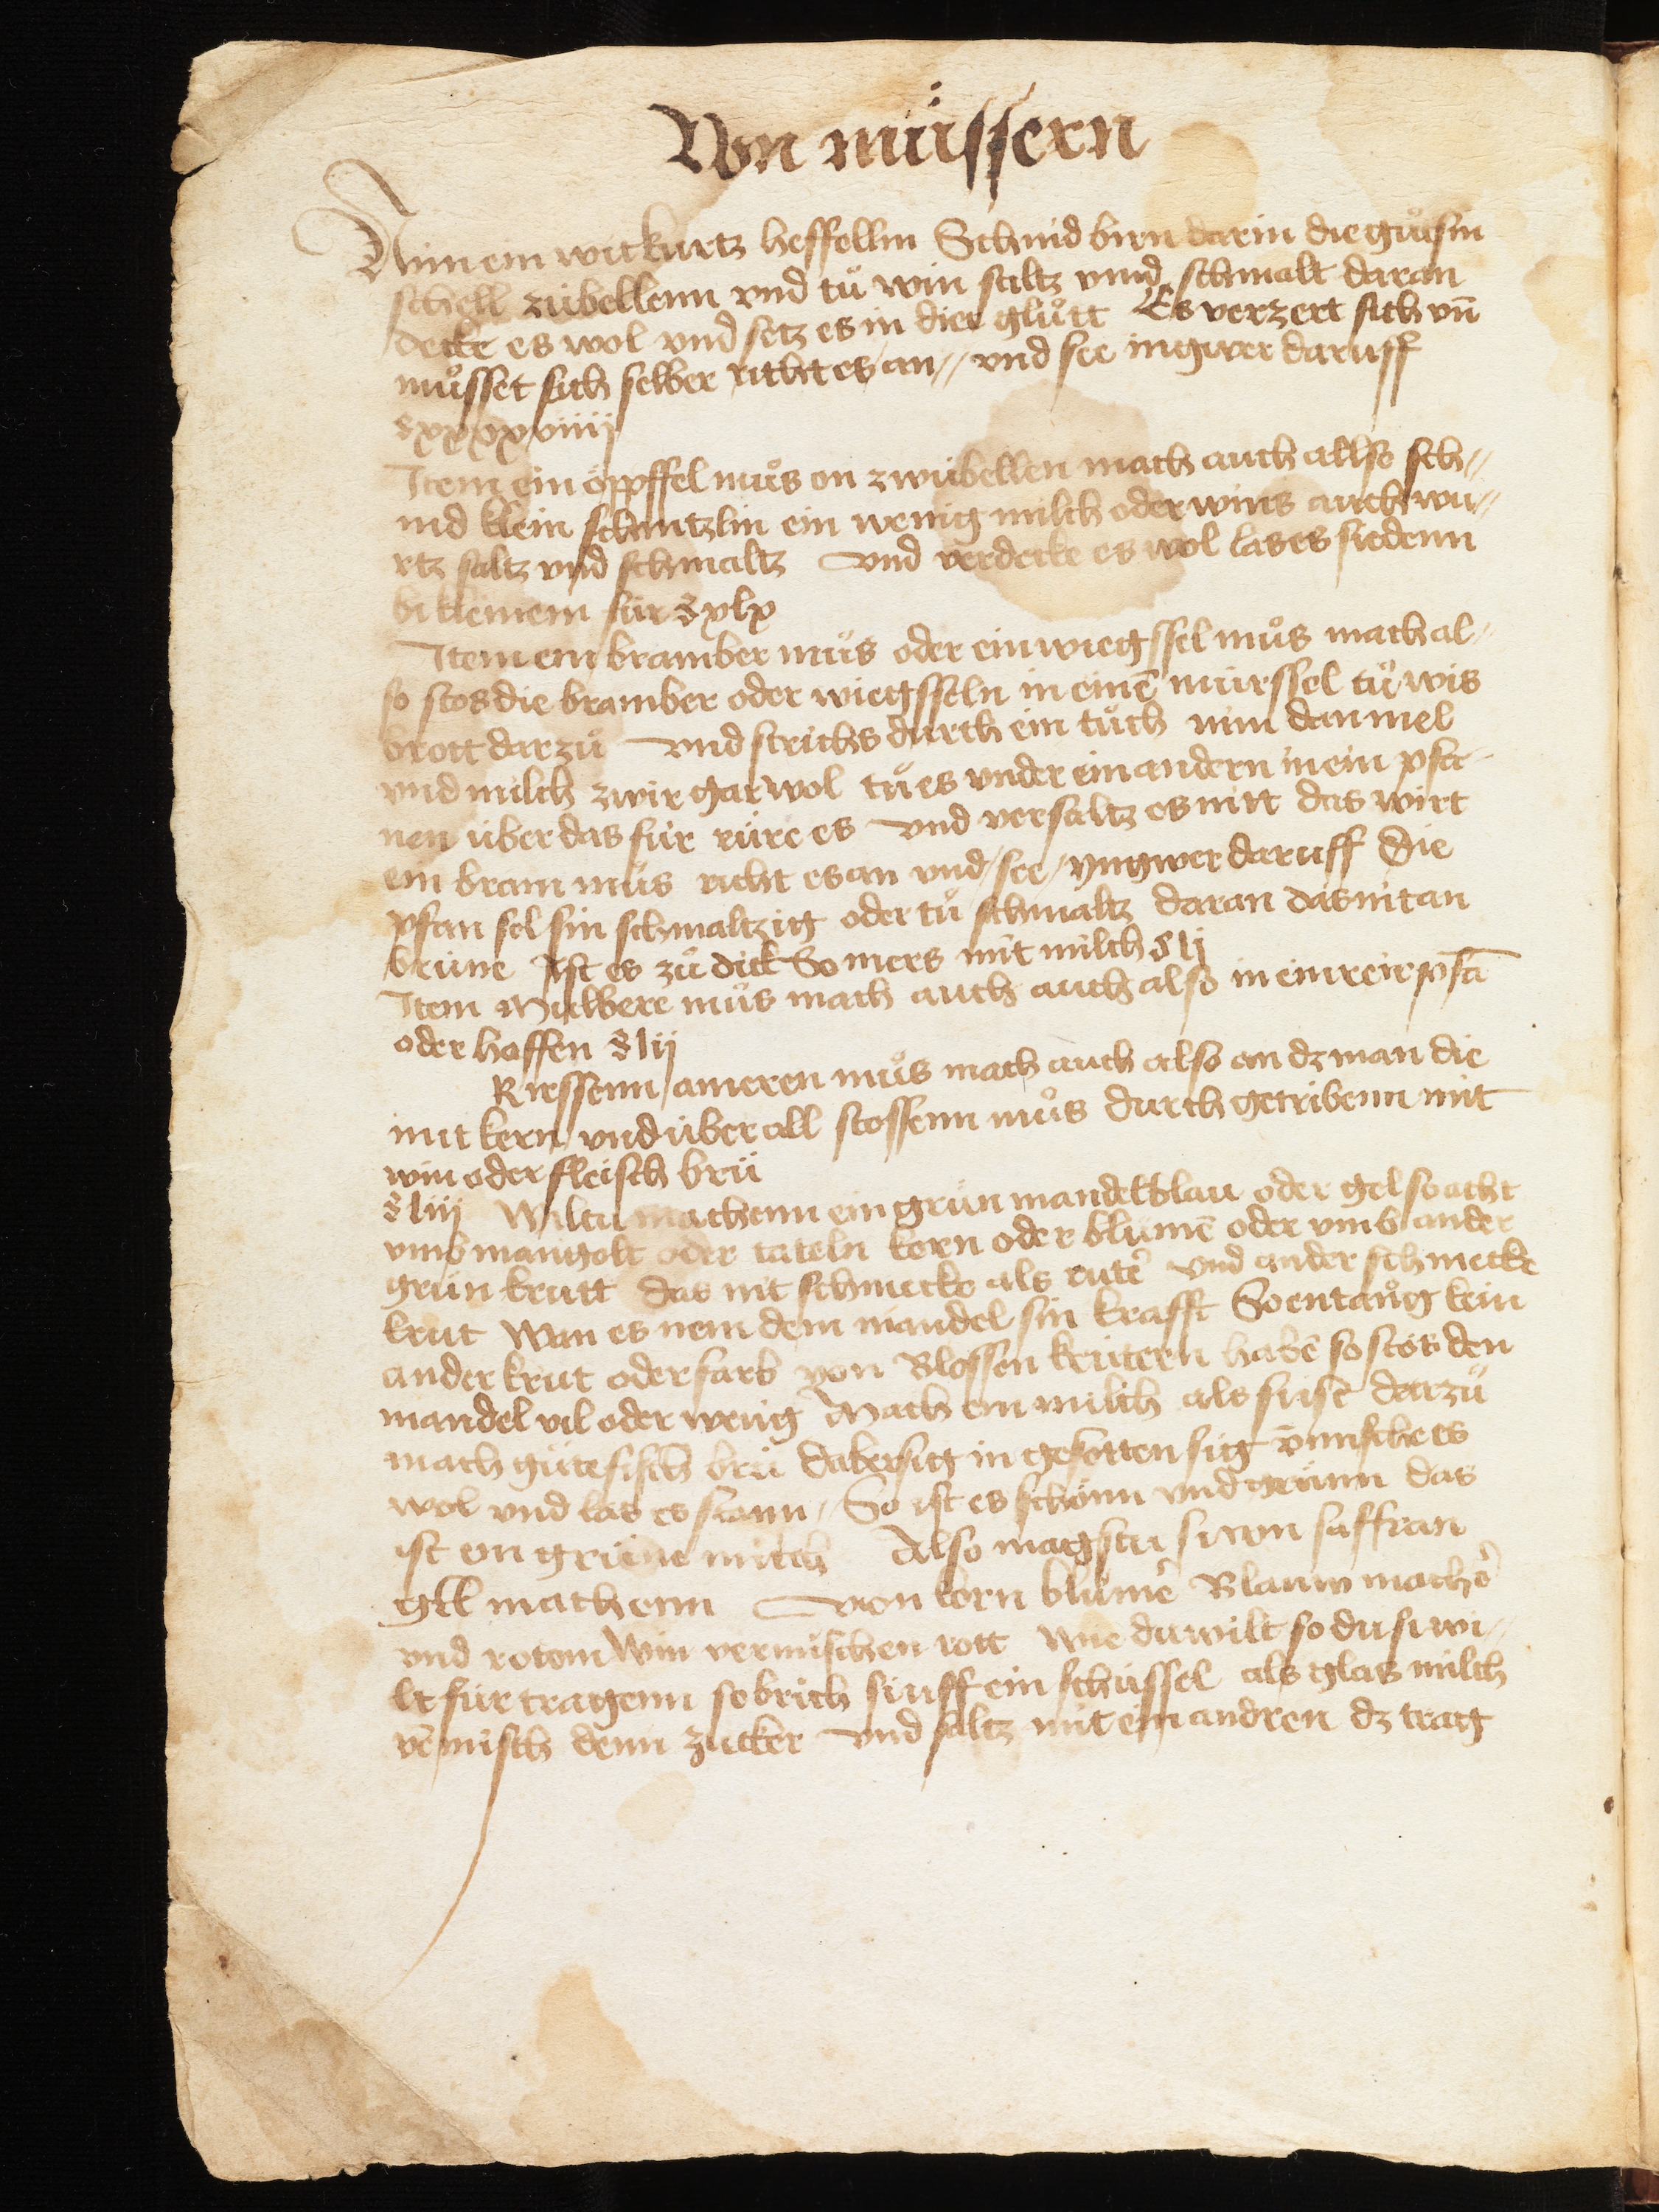 Von müssern
Nim ein wit kurtz heffellin Schnid birn darin die gůt sin
schell zübellenn vnd tů win saltz vnnd schmalt daran
decke es wol vnd setz es in dier glůtt Es verzert sich vn̄
můsset sich selber richt es an // vnd see ingwer daruff
§ xxxxviiij
Item ein öppffel můs on zwübellen mach auch allso sch//
nid klein schnitzlin ein wenig milch oder wins auch wu//
rtz saltz vnd schmaltz vnd verdecke es wol las es siedenn
bi kleinem für § xlx
Item ein bramber můs oder ein wiegssel můs mach al-
so stos die bramber oder wiegsseln in einē mürssel tů wis
brott darzů vnd strichs durch ein tůch nim dan mel
vnd milch zwir gar wol tů es vnder ein andern in ein pfa-
nen über das für rüre es vnd versaltz es nitt das wirt
ein bram můs richt es an vnd / see / yngwer daruff Die
pfan sol sin schmaltzig oder tů schmaltz daran das nit an
brüne Ist es zů dick So mers mit milch § lj
Item Mulbere můs mach auch auch also in ein reir pfā
oder haffen § lij
Kirssenn / ameren můs mach auch also an dz man die
mit kern vnd über all stossenn můs durch getribenn mit
win oder fleisch brü
§ liij Wiltu machenn ein grün mandel blau oder gel so acht
vmb mangolt oder tateln korn oder blůmē oder vmb ander
grün krutt das nit schmecke als rutē vnd ander schmecke
krut Wan es nem dem mandel sin krafft So entaůg kein
ander krut oder farb von Blossen krütern habē so stos den
mandel vil oder wenig Mach ein milch als süsē darzů
mach gůte fisch brü daber sig in gesotten sig v̄mische es
wol vnd las es stann / So ist es schönn vnd grünn das
ist ein grüne milch Also magstu si von saffran
gell machenn von korn blůmē Blauw machē
vnd rotem Win vermüschen rott wie du wilt so du si wi//
lt für tragenn so brich si uff ein schüssel als glas milch
vēmisch denn zucker vnd saltz mit ein andren dz trag